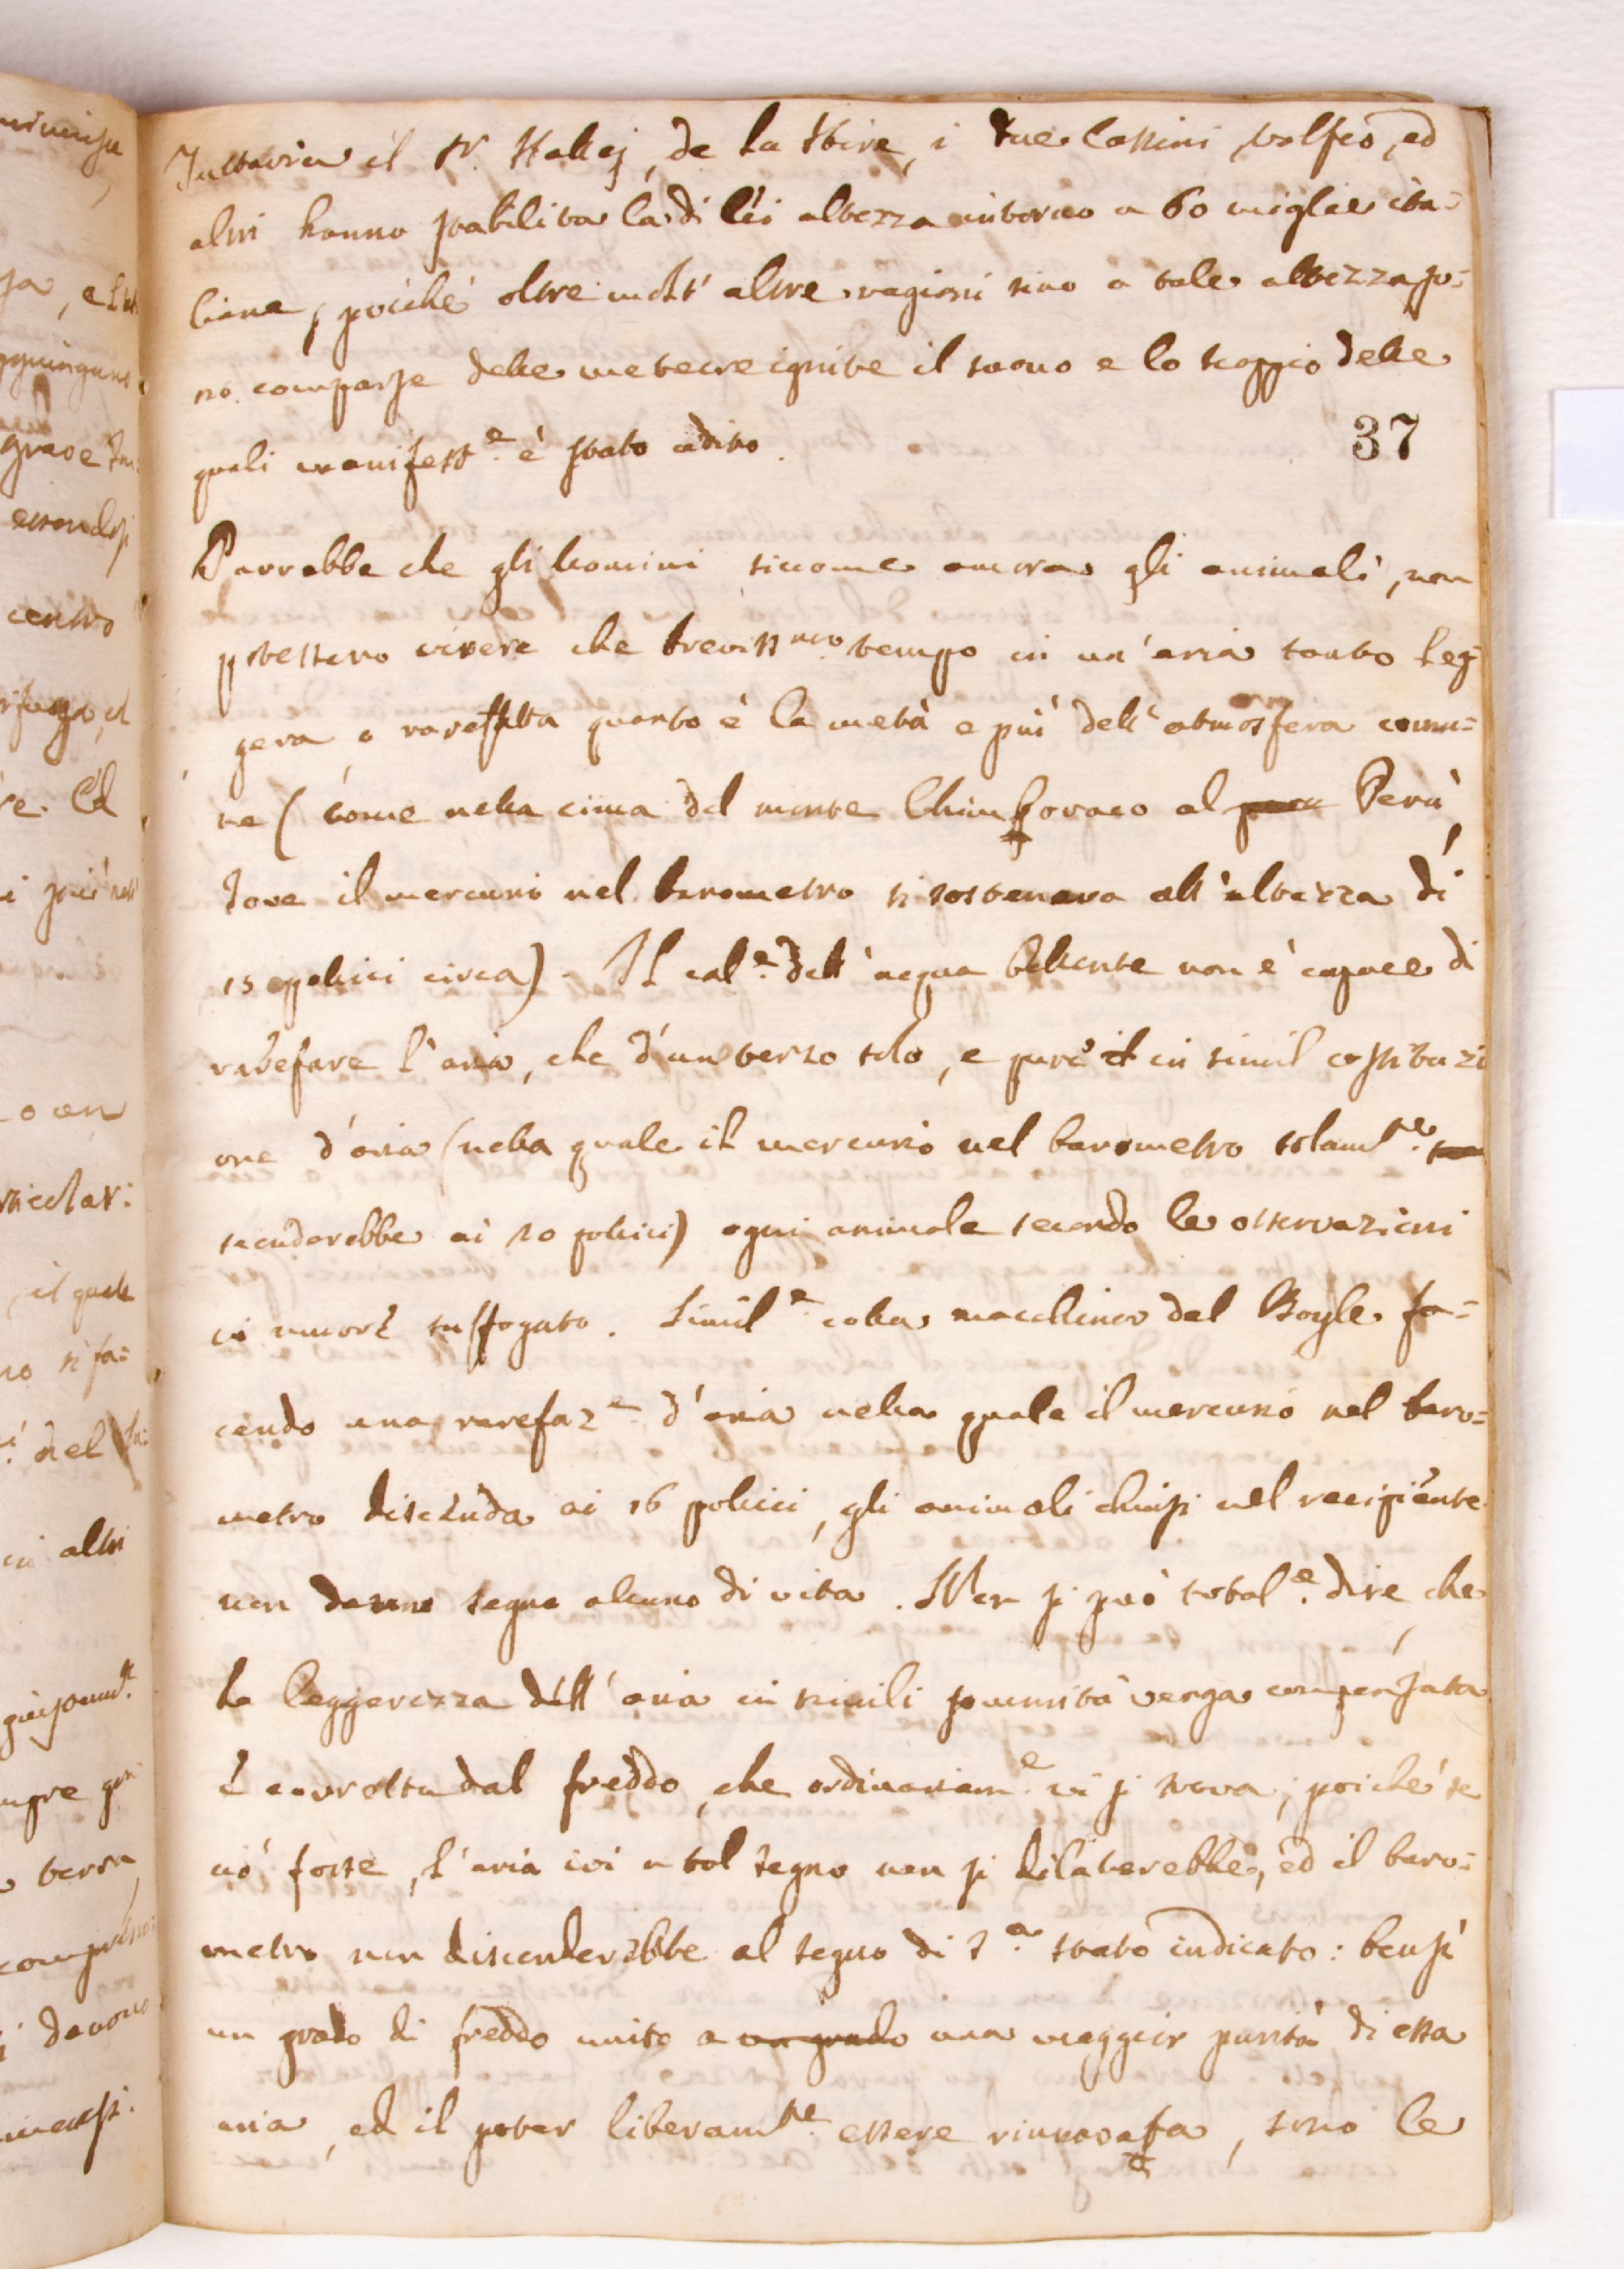 Tuttavia il Sr. Halley, de la Hire, i due Cassini, Volfio, ed
altri hanno stabilita la di lei altezza intorno a 60 miglie ita=
liane, poiché oltre molt' altre ragioni sino a tale altezza so=
no comparse delle meteore ignite il suono e lo scoppio delle
quali manifest.e è stato udito.
37
Parrebbe che gli uomini siccome ancora gli animali, non
potessero vivere che breviss.mo tempo in un' aria tanto leg=
gera, o rarefatta quanto è la metà e più dell' atmosfera comu=
ne (come nella cima del monte Chimboraco al Perù,
dove il mercurio nel barometro si sosteneva all' altezza di
15 pollici circa). Il cal.e dell' acqua bollente non è capace di
rarefare l' aria, che d' un terzo solo, e pure in simil costituzi
one d' aria (nella quale il mercurio nel barometro solam.te
scenderebbe ai 20 pollici) ogni animale secondo le osservazioni
vi muore suffogato. Simil.e colla macchina del Boyle fa=
cendo una rarefaz.e d' aria nella quale il mercurio nel baro=
metro discenda ai 16 pollici, gli animali chiusi nel recipiente
non danno segno alcuno di vita. Non si può total.e dire, che
la leggerezza dell' aria in simili sommità venga compensata
e corretta dal freddo, che ordinariam.e vi si trova; poiché se
ciò fosse, l' aria ivi a tal segno non si dilaterebbe, ed il baro=
metro non discenderebbe al segno di s.a stato indicato: bensì
un grado di freddo unito a un grado una maggior purità di essa
aria, ed il poter liberam.te essere rinnovata, sono le